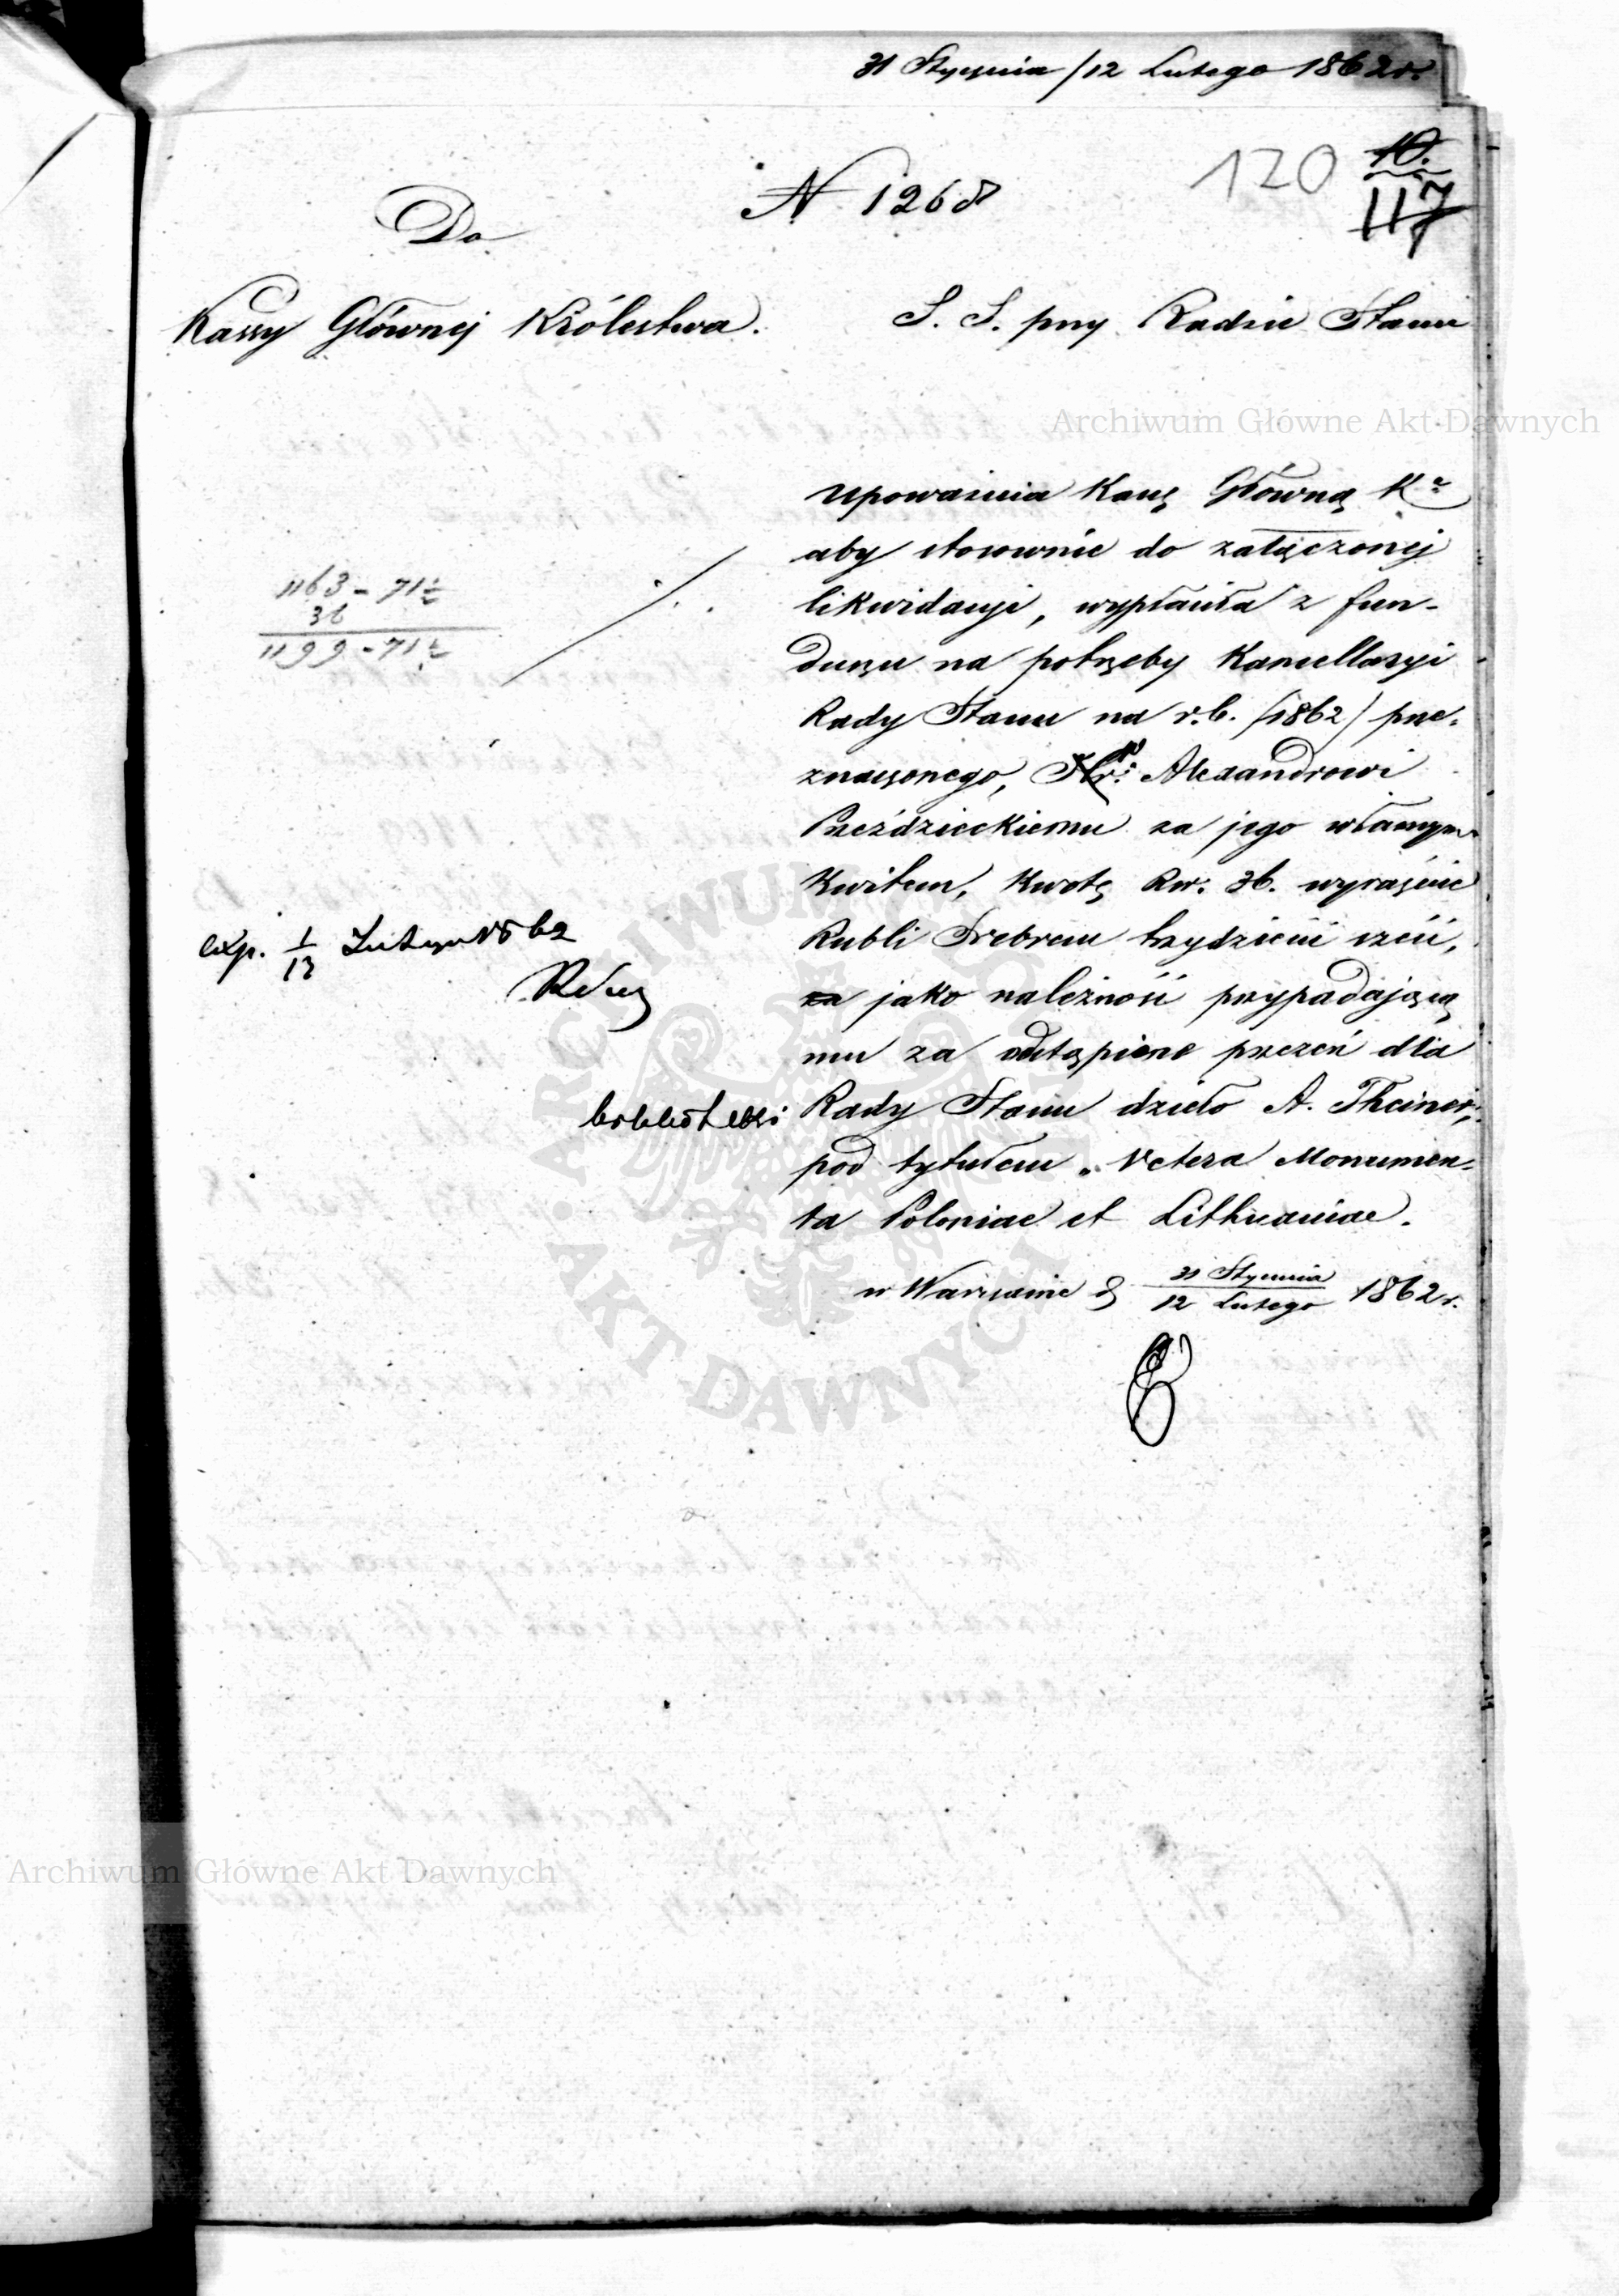 31 Stycznia /12 Lutego 1862 r.
N 1268
120
10.
117
Do
Kassy Głównej Królestwa.
S. S. przy Radzie Stanu
Upoważnia Kassę Główną K
aby stosownie do załączonej
likwidacyi, wypłaciła z fun-
duszu na potrzeby Kancellaryi
Rady Stanu na r. b. /1862/ prze-
znaczonego, Alexandrowi
Przeździeckiemu za jego własnym
Kwitem, kwotę Rsr. 36. wyraźnie
Rubli Srebrem trzydzieści sześć,
za jako należność przypadającą
mu za odstąpione przezeń dla
biblioteki Rady Stanu dzieło A. Theiner
pod tytułem „Vetera Monumen-
ta Poloniae et Lithuaniae.
w Warszawie d 31 Stycznia / 12 Lutego 1862 r.
1163 - 71 ½
36
1199 - 71 ½
exp. 1/13 Lutego 1862
Archiwum Główne Akt Dawnych
ARCHIWUM
AKT DAWNYCH
Archiwum Główne Akt Dawnych